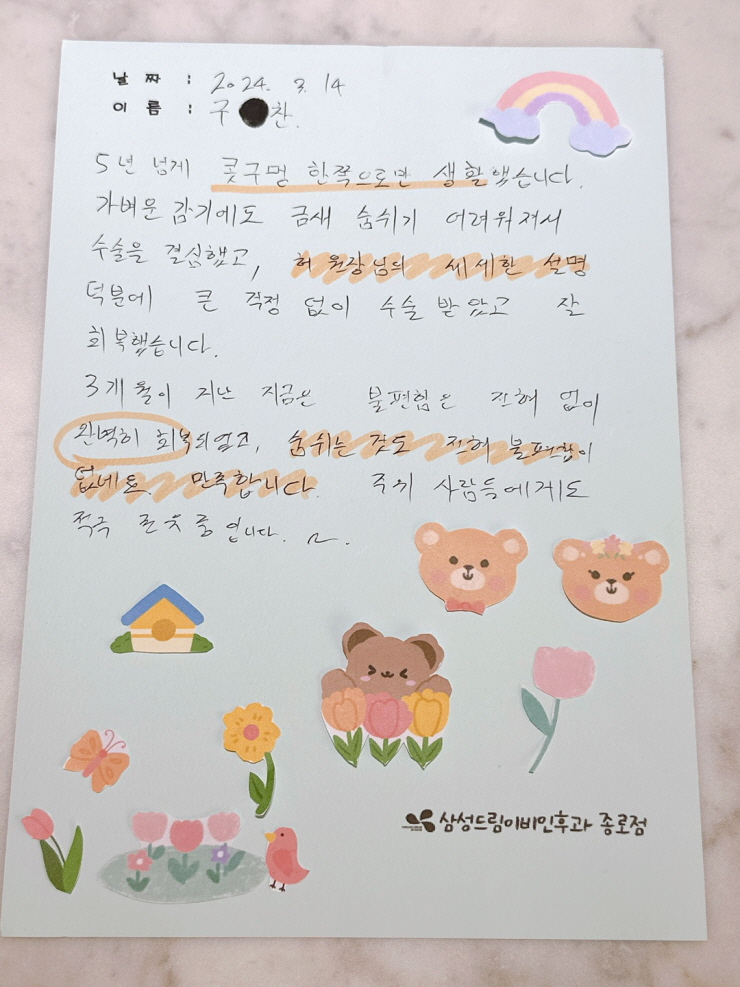 날 짜 : 2024. 3. 14
이 름 : 구 찬.
5년 넘게 콧구멍 한쪽으로만 생활했습니다.
가벼운 감기에도 금새 숨쉬기 어려워져서
수술을 결심했고, 허 원장님의 세세한 설명
덕분에 큰 걱정 없이 수술 받았고 잘
회복했습니다.
3개월이 지난 지금은 불편함은 전혀 없이
완벽히 회복되었고, 숨쉬는 것도 전혀 불편함이
없네요. 만족합니다. 주위 사람들에게도
적극 권유중입니다.
삼성드림이비인후과 종로점